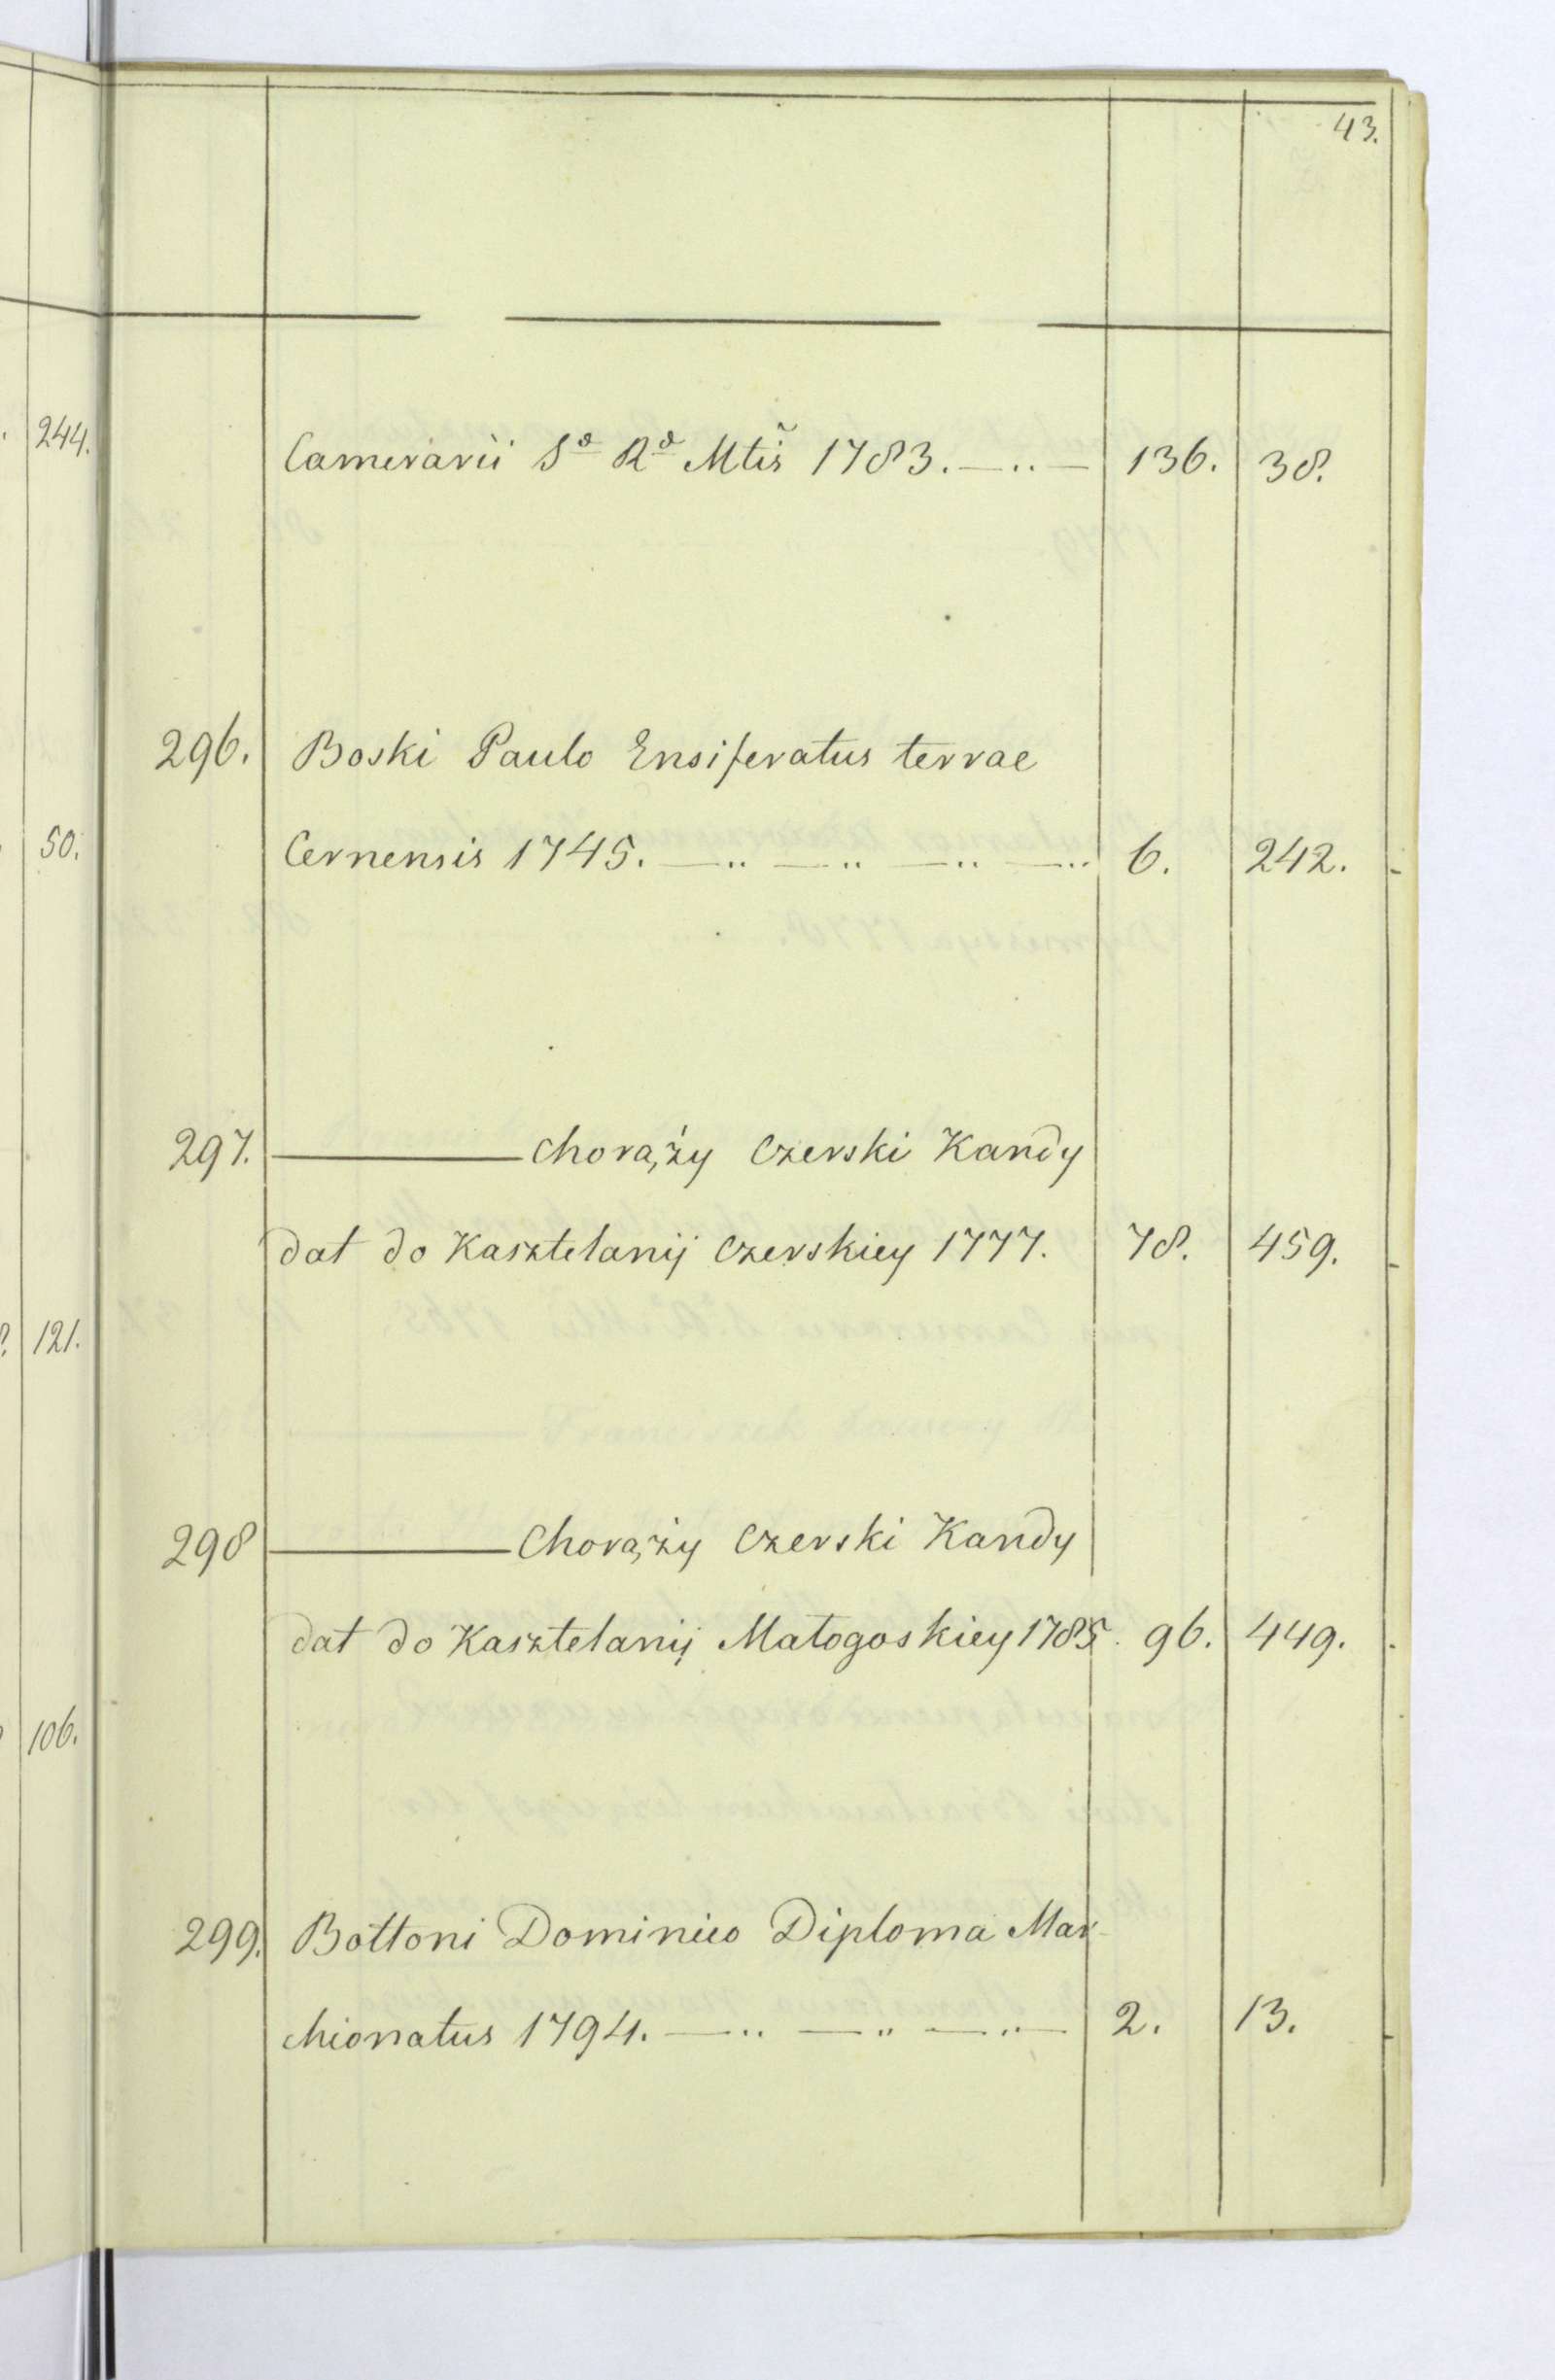 43.
244.
Camerarii Sᵃ Rᵃ Mtis̃ 1783. — ‥ — 136. 38.
296. Boski Paulo Ensiferatus terrae
50.
Cernensis 1745. — ‥ — ‥ — ‥ — ‥ 6. 242.
297. ——— Chorąży Czerski Kandy
dat do Kasztelanij Czerskiey 1777. 78. 459.
121.
298 ——— Chorąży Czerski Kandy
dat do Kasztelanij Małogoskiey 1785. 96. 449.
106.
299. Bottoni Dominico Diploma Mar-
chionatus 1794. — ‥ — ‥ — ‥ — 2. 13.